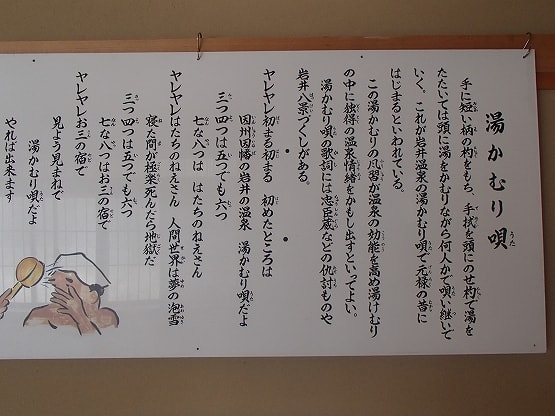 湯かむり唄
手に短い柄の杓をもち、手拭を頭にのせ杓で湯を
たたいては頭に湯をかむりながら何人かで唄い継いで
いく。これが岩井温泉の湯かむり唄で元禄の昔に
はじまるといわれている。
この湯かむりの風習が温泉の効能を高め湯けむり
の中に独得の温泉情緒をかもし出すといってよい。
湯かむり唄の歌詞には忠臣蔵などの仇討ものや
岩井八景づくしがある。
ヤレヤレ初まる初まる 初めたところは
因州因幡の岩井の温泉 湯かむり唄だよ
三つ四つは五つでも六つ
七な八つは はたちのねえさん
ヤレヤレはたちのねえさん 人間世界は夢の泡雪
寝た間が極楽死んだら地獄だ
三つ四つは五つでも六つ
七な八つはお三の宿で
ヤレヤレお三の宿で
見よう見まねで
湯かむり唄だよ
やれば出来ます